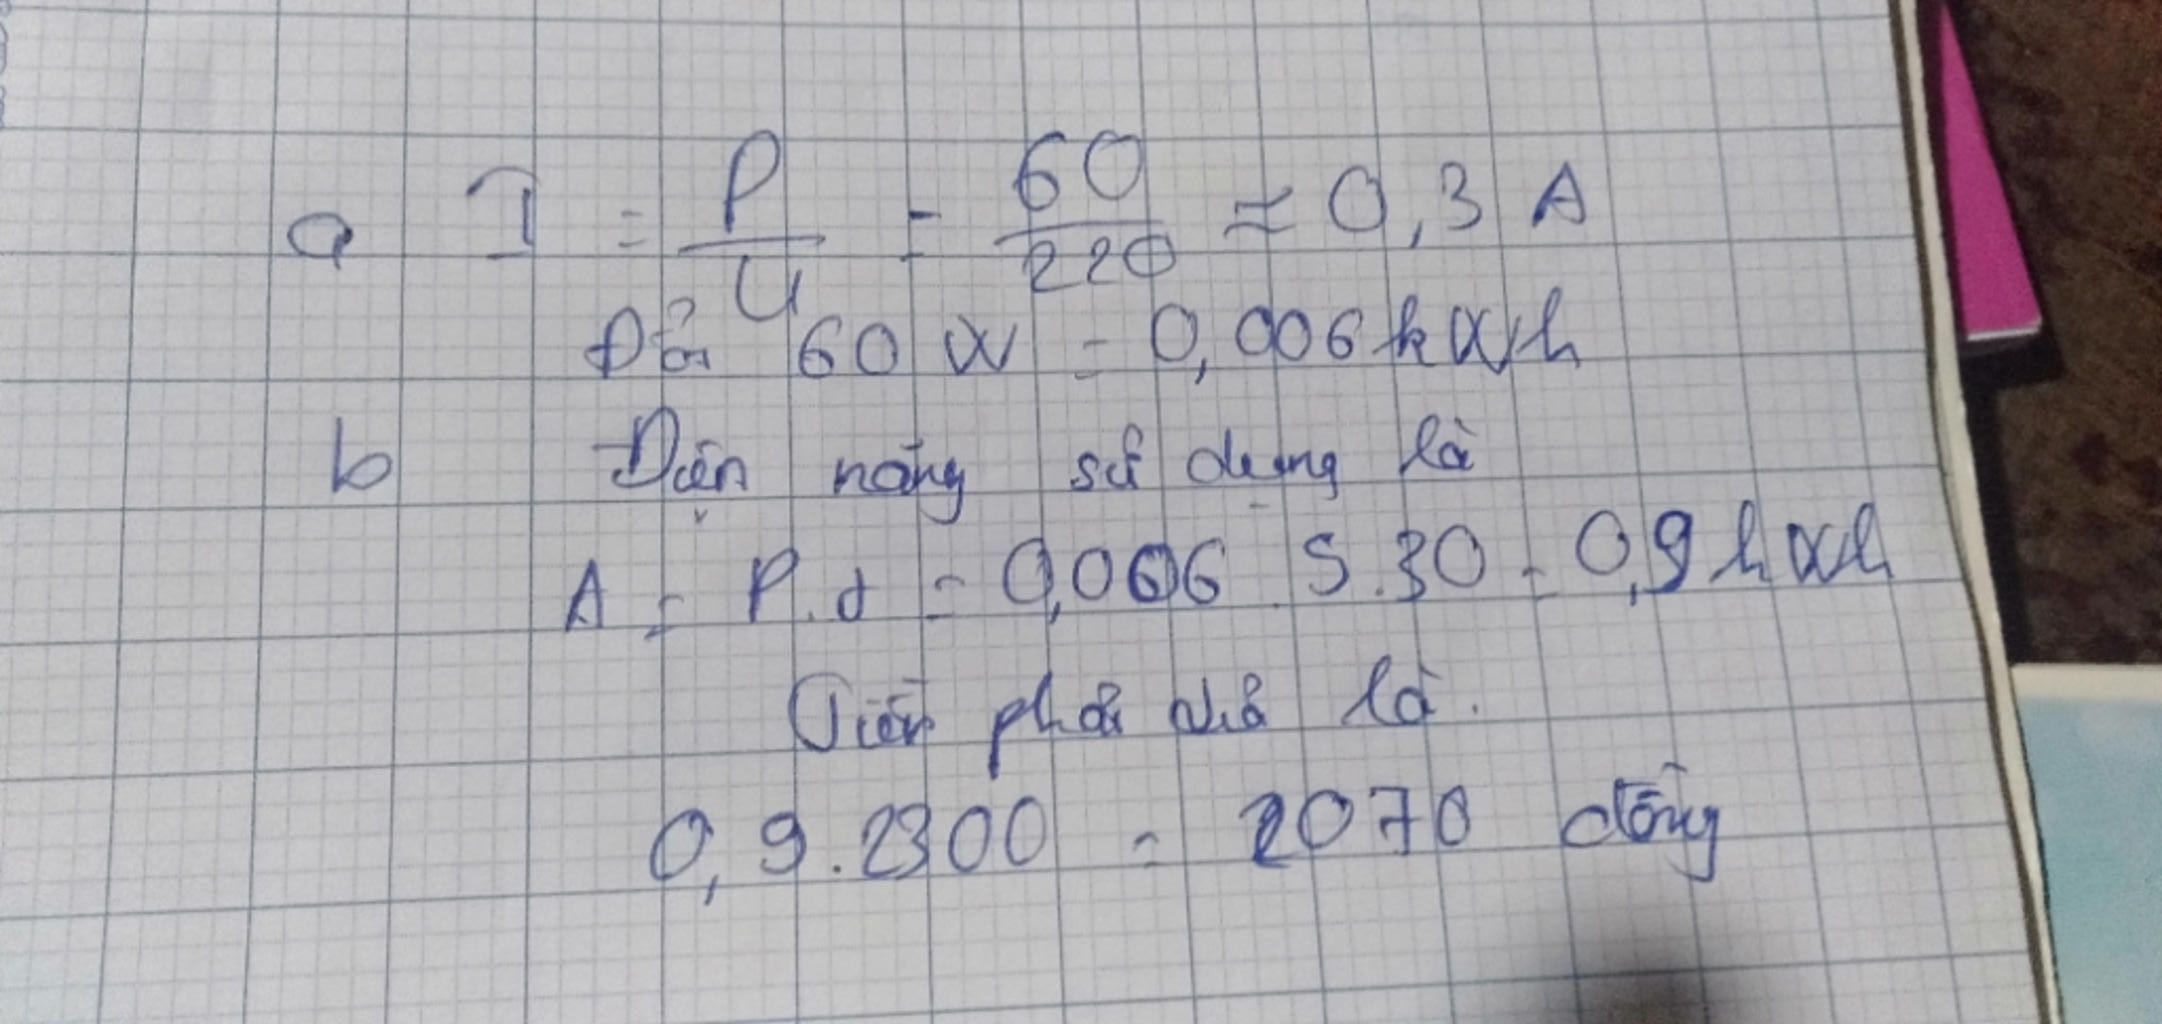 a I = P/U = 60/220 ≈ 0,3 A
Đổi 60 W = 0,006 kWh
b Điện năng sử dụng là
A = P.t = 0,006 . 5.30 = 0,9 kWh
Tiền phải trả là.
0,9.2300 = 2070 đồng